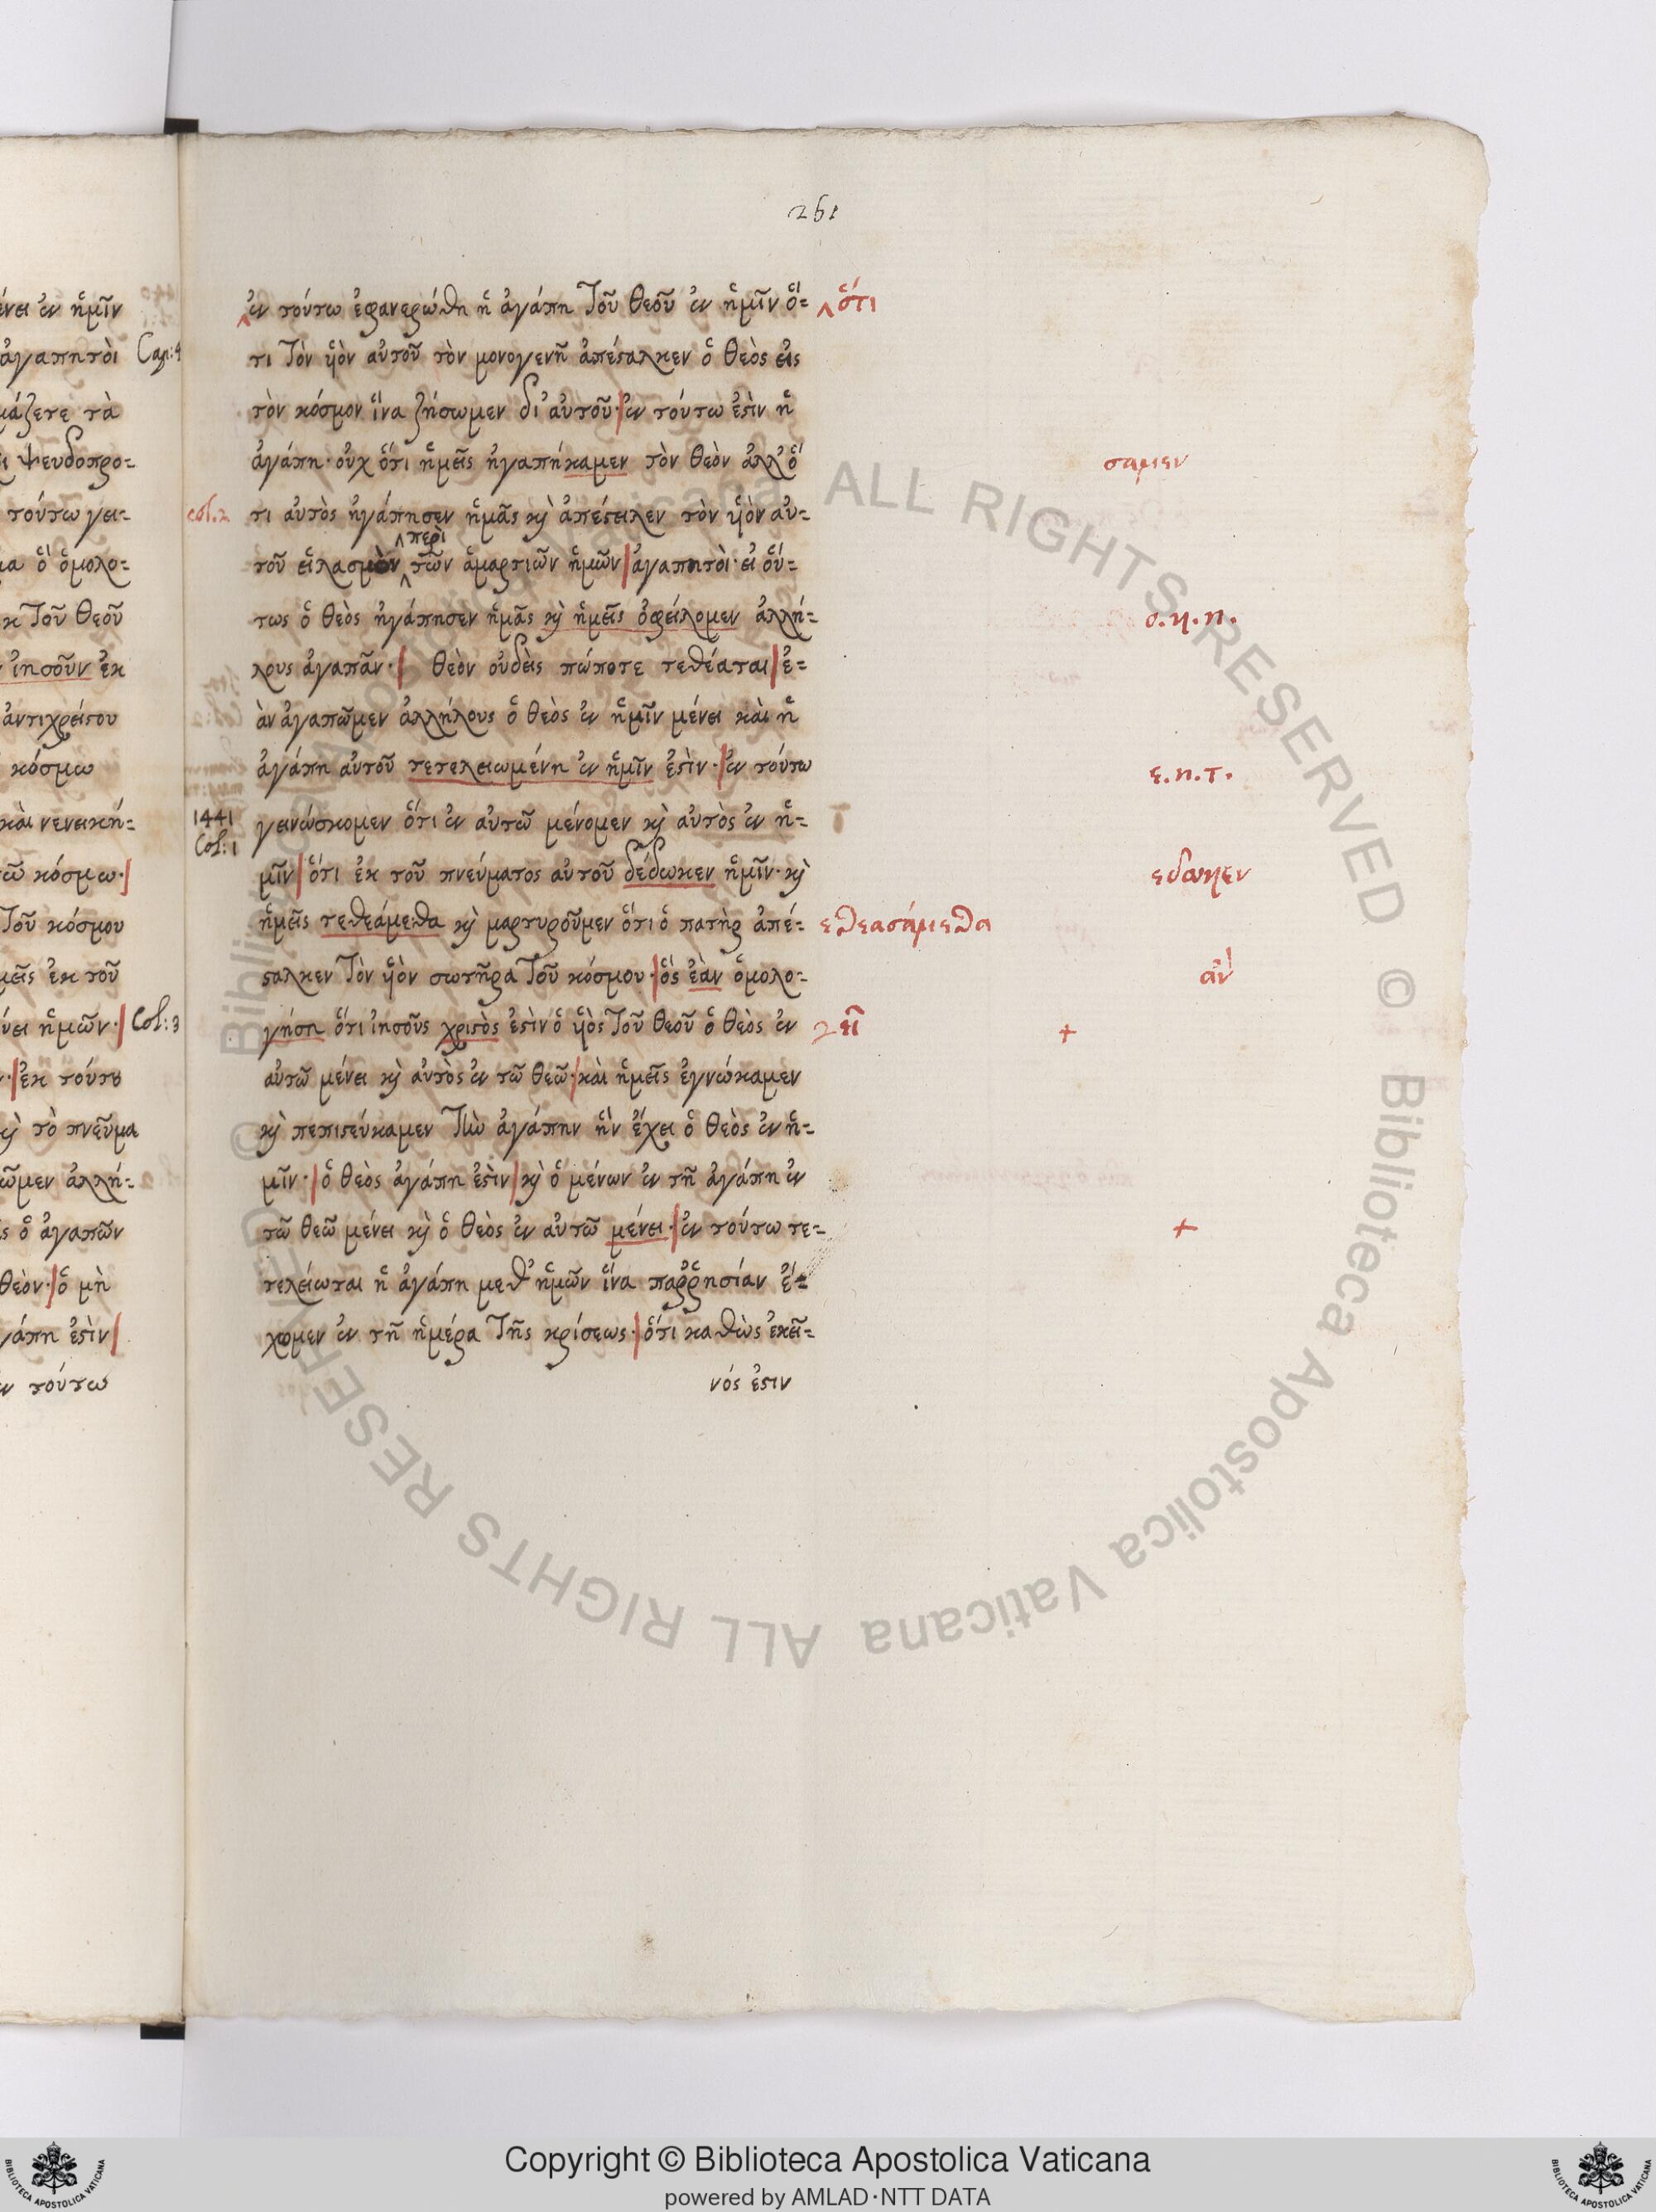 261
ένει ἐν ἡμῖν
ἀγαπητοὶ Cap: 4
μάζετε τὰ
ι ψευδοπρο-
τούτω γει-
μα ὃ ὁμολο-
κ τοῦ θεοῦ
ἰησοῦν ἐκ
ἀντιχρείστου
κόσμω
καὶ νενεική-
ῶ κόσμω·
τοῦ κόσμου
μεῖς ἐκ τοῦ
ύει ἡμῶν· Col: 3
ἐκ τούτου
κὶ τὸ πνεῦμα
ῶμεν ἀλλή-
ς ὁ ἀγαπῶν
θεὸν· ὁ μὴ
γάπη ἐστὶν
ν τούτω
ἐν τούτω ἐφανερώθη ἡ ἀγάπη τοῦ θεοῦ ἐν ἡμῖν ὅ- ὅτι
τι τὸν υἱὸν αὐτοῦ τὸν μονογενῆ ἀπέσταλκεν ὁ θεὸς εἰς
τὸν κόσμον ἵνα ζήσωμεν δι' αὐτοῦ· ἐν τούτω ἐστὶν ἡ
ἀγάπη· οὐχ ὅτι ἡμεῖς ἠγαπήκαμεν τὸν θεὸν ἀλλ' ὅ σαμεν
col. 2 τι αὐτὸς ἠγάπησεν ἡμᾶς κὶ ἀπέστειλεν τὸν υἱὸν αὐ-
περὶ
τοῦ εἱλασμὸν τῶν ἁμαρτιῶν ἡμῶν ἀγαπητοὶ· εἰ οὕ-
τως ὁ θεὸς ἠγάπησεν ἡμᾶς κὶ ἡμεῖς ὀφείλομεν ἀλλή- ο.κ.η.
λους ἀγαπᾶν· θεὸν οὐδεὶς πώποτε τεθέαται ἐ-
ὰν ἀγαπῶμεν ἀλλήλους ὁ θεὸς ἐν ἡμῖν μένει καὶ ἡ
ἀγάπη αὐτοῦ τετελειωμένη ἐν ἡμῖν ἐστὶν· ἐν τούτω ε.η.τ.
1441 γεινώσκομεν ὅτι ἐν αὐτῶ μένομεν κὶ αὐτὸς ἐν ἡ-
Col: 1
μῖν ὅτι ἐκ τοῦ πνεύματος αὐτοῦ δέδωκεν ἡμῖν· κὶ εδωκεν
ἡμεῖς τεθεάμεθα κὶ μαρτυροῦμεν ὅτι ὁ πατὴρ ἀπέ- εθεασάμεθα
σταλκεν τὸν υἱὸν σωτῆρα τοῦ κόσμου· ὃς ἐὰν ὁμολο- αν
γήση ὅτι ἰησοῦς χριστὸς ἐστὶν ὁ υἱὸς τοῦ θεοῦ ὁ θεὸς ἐν +
αὐτῶ μένει κὶ αὐτὸς ἐν τῶ θεῶ· καὶ ἡμεῖς ἐγνώκαμεν
κὶ πεπιστεύκαμεν τὴν ἀγάπην ἣν ἔχει ὁ θεὸς ἐν ἡ-
μῖν· ὁ θεὸς ἀγάπη ἐστὶν κὶ ὁ μένων ἐν τῆ ἀγάπη ἐν
τῶ θεῶ μένει κὶ ὁ θεὸς ἐν αὐτῶ μένει· ἐν τούτω τε- +
τελείωται ἡ ἀγάπη μεθ' ἡμῶν ἵνα παῤῥησίαν ἔ-
χομεν ἐν τῆ ἡμέρα τῆς κρίσεως· ὅτι καθὼς ἐκεῖ-
νός ἐστιν
© Biblioteca Apostolica Vaticana ALL RIGHTS RESERVED © Biblioteca Apostolica Vaticana ALL RIGHTS RESERVED
Copyright © Biblioteca Apostolica Vaticana
powered by AMLAD·NTT DATA
BIBLIOTECA APOSTOLICA VATICANA
BIBLIOTECA APOSTOLICA VATICANA